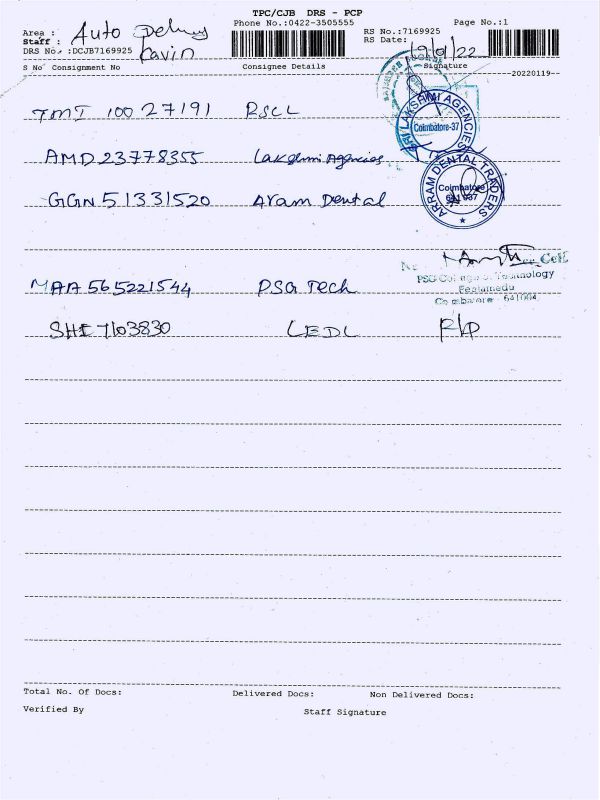 TPC/CJB DRS - PCP
Phone No.:0422-3505555
Page No.:1
Area : Auto
Staff : Kavin
DRS No. :DCJB7169925
RS No.:7169925
RS Date: 19/01/22
S No Consignment No Consignee Details Signature
-20220119-
10027191 RSCL
AMD 23778355 Lakshmi Agencies
SRI LAKSHMI AGENCIES
Coimbatore-37
GGN 51331520 Aram Dental
ARRAM DENTAL TRADERS
Coimbatore
641 037
MAA 565221544 PSG Tech
Cell
PSG College of Technology
Peelamedu
Coimbatore - 641004
7103830 LEDL
Total No. Of Docs: Delivered Docs: Non Delivered Docs:
Verified By Staff Signature